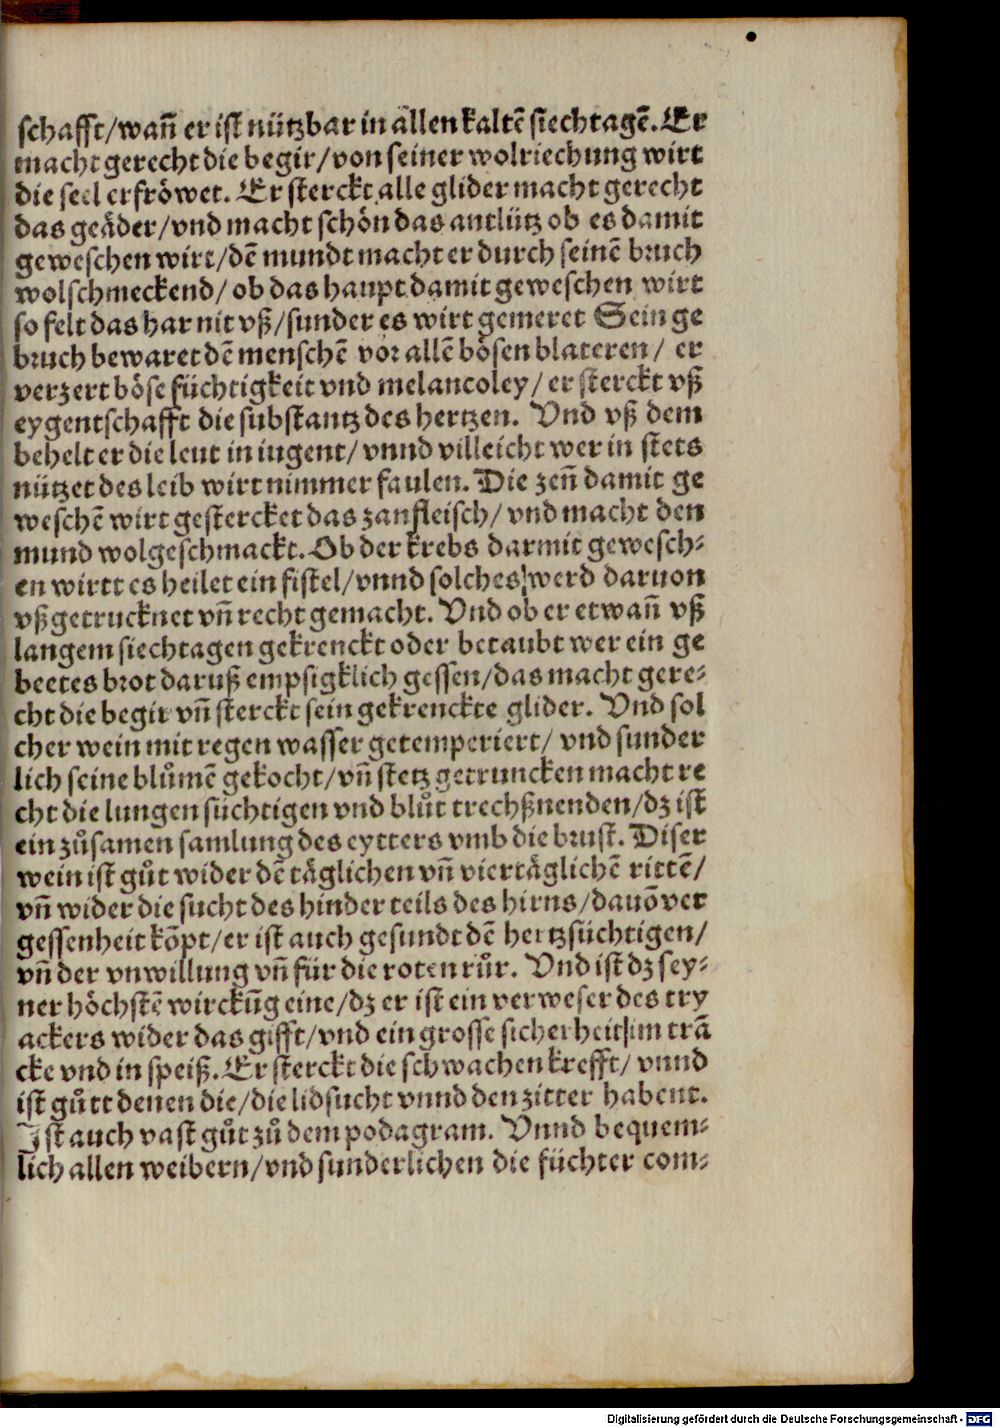 schafft/wañ er ist nützbar in allen kaltẽ siechtagẽ. Er
macht gerecht die begir/von seiner wolriechung wirt
die seel erfröwet. Er sterckt alle glider macht gerecht
das geäder/vnd macht schön das antlütz ob es damit
geweschen wirt/dẽ mundt macht er durch seinẽ bruch
wolschmeckend/ob das haupt damit geweschen wirt
so felt das har nit vß/sunder es wirt gemeret Sein ge
bruch bewaret dẽ menschẽ vor allẽ bösen blateren/ er
verzert böse füchtigkeit vnd melancoley/er sterckt vß
eygentschafft die substantz des hertzen. Vnd vß dem
behelt er die leut in iugent/vnnd villeicht wer in stets
nützet des leib wirt nimmer faulen. Die zeñ damit ge
weschẽ wirt gestercket das zanfleisch/vnd macht den
mund wolgeschmackt. Ob der krebs darmit gewesch⸗
en wirtt es heilet ein fistel/vnnd solches werd daruon
vß getrucknet vñ recht gemacht. Vnd ob er etwañ vß
langem siechtagen gekrenckt oder betaubt wer ein ge
beetes brot daruß empsigklich gessen/das macht gere⸗
cht die begir vñ sterckt sein gekrenckte glider. Vnd sol
cher wein mit regen wasser getemperiert/ vnd sunder
lich seine blůmẽ gekocht/vñ stetz getruncken macht re
cht die lungen süchtigen vnd blůt trechßnenden/dz ist
ein zůsamen samlung des eytters vmb die brust. Diser
wein ist gůt wider dẽ täglichen vñ viertäglichẽ rittẽ/
vñ wider die sucht des hinder teils des hirns/dauõ ver
gessenheit kõpt/er ist auch gesundt dẽ hertzsüchtigen/
vñ der vnwillung vñ für die roten růr. Vnd ist dz sey⸗
ner höchstẽ wirckũg eine/dz er ist ein verweser des try
ackers wider das gifft/vnd ein grosse sicherheit im trã
cke vnd in speiß. Er sterckt die schwachen krefft/ vnnd
ist gůtt denen die/die lidsucht vnnd den zitter habent.
Ist auch vast gůt zů dem podagram. Vnnd bequem⸗
lich allen weibern/vnd sunderlichen die füchter com⸗
Digitalisierung gefördert durch die Deutsche Forschungsgemeinschaft - DFG